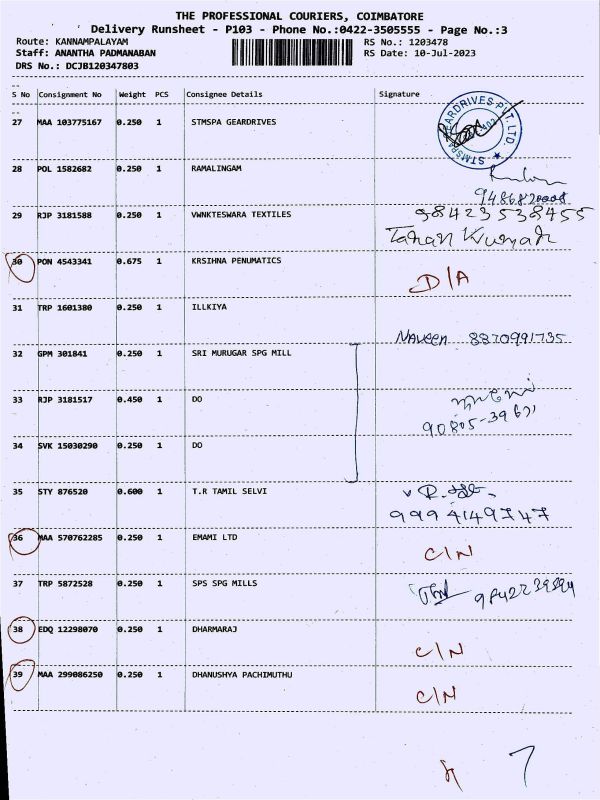 THE PROFESSIONAL COURIERS, COIMBATORE
Delivery Runsheet - P103 - Phone No.:0422-3505555 - Page No.:3
Route: KANNAMPALAYAM RS No.: 1203478
Staff: ANANTHA PADMANABAN RS Date: 10-Jul-2023
DRS No.: DCJB120347803
S No Consignment No Weight PCS Consignee Details Signature
27 MAA 103775167 0.250 1 STMSPA GEARDRIVES
28 POL 1582682 0.250 1 RAMALINGAM
29 RJP 3181588 0.250 1 VWNKTESWARA TEXTILES
30 PON 4543341 0.675 1 KRSIHNA PENUMATICS D/A
31 TRP 1601380 0.250 1 ILLKIYA
Naveen 8870991735
32 GPM 301841 0.250 1 SRI MURUGAR SPG MILL
33 RJP 3181517 0.450 1 DO
34 SVK 15030290 0.250 1 DO
35 STY 876520 0.600 1 T.R TAMIL SELVI
9994149747
36 MAA 570762285 0.250 1 EMAMI LTD C/N
37 TRP 5872528 0.250 1 SPS SPG MILLS
38 EDQ 12298070 0.250 1 DHARMARAJ C/N
39 MAA 299086250 0.250 1 DHANUSHYA PACHIMUTHU C/N
7